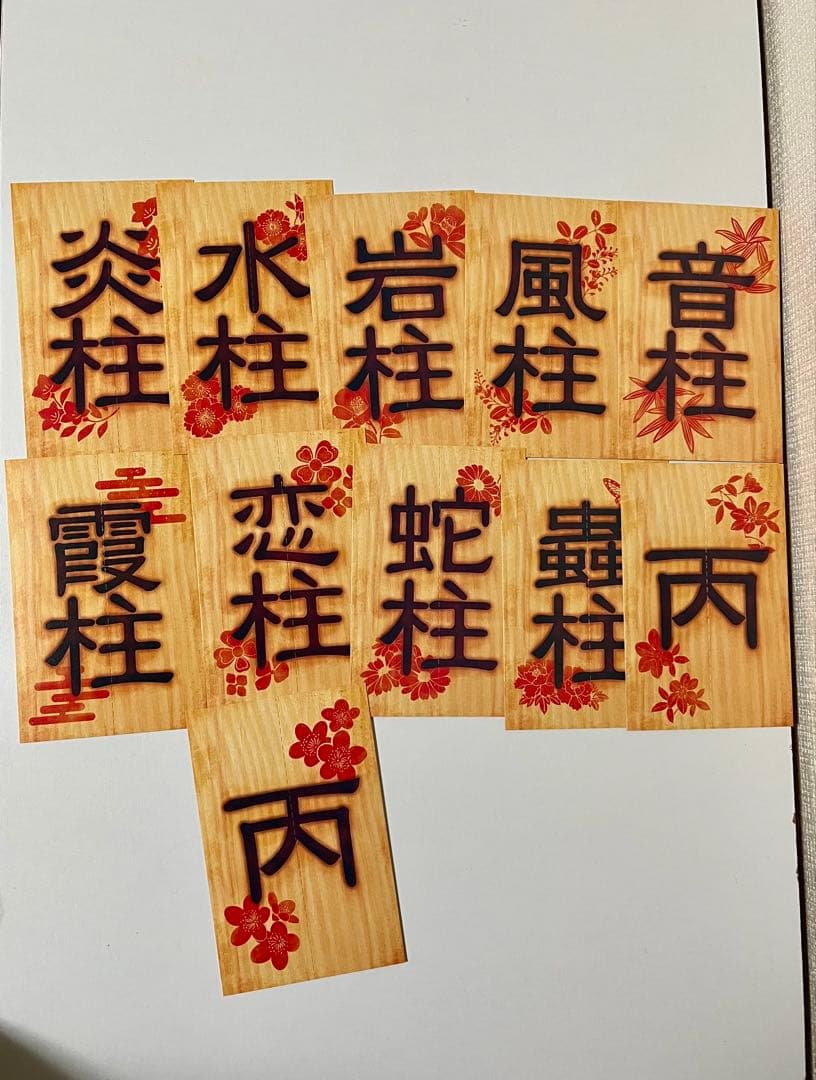 炎柱
水柱
岩柱
風柱
音柱
霞柱
恋柱
蛇柱
蟲柱
丙
丙